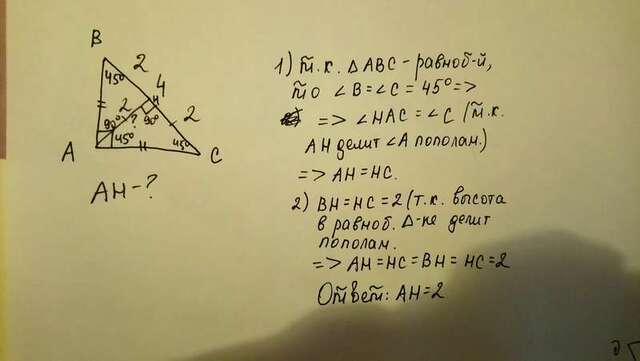 1) т.к. △ABC – равноб-й,
то ∠B = ∠C = 45° =>
=> ∠HAC = ∠C (т.к.
AH делит ∠A пополам).
=> AH = HC.
2) BH = HC = 2 (т.к. высота
в равноб. △-ке делит
пополам.
=> AH = HC = BH = HC = 2
Ответ: AH = 2
B
45°
2
4
H
90°
2
?
90°
45°
A
2
45°
C
AH - ?